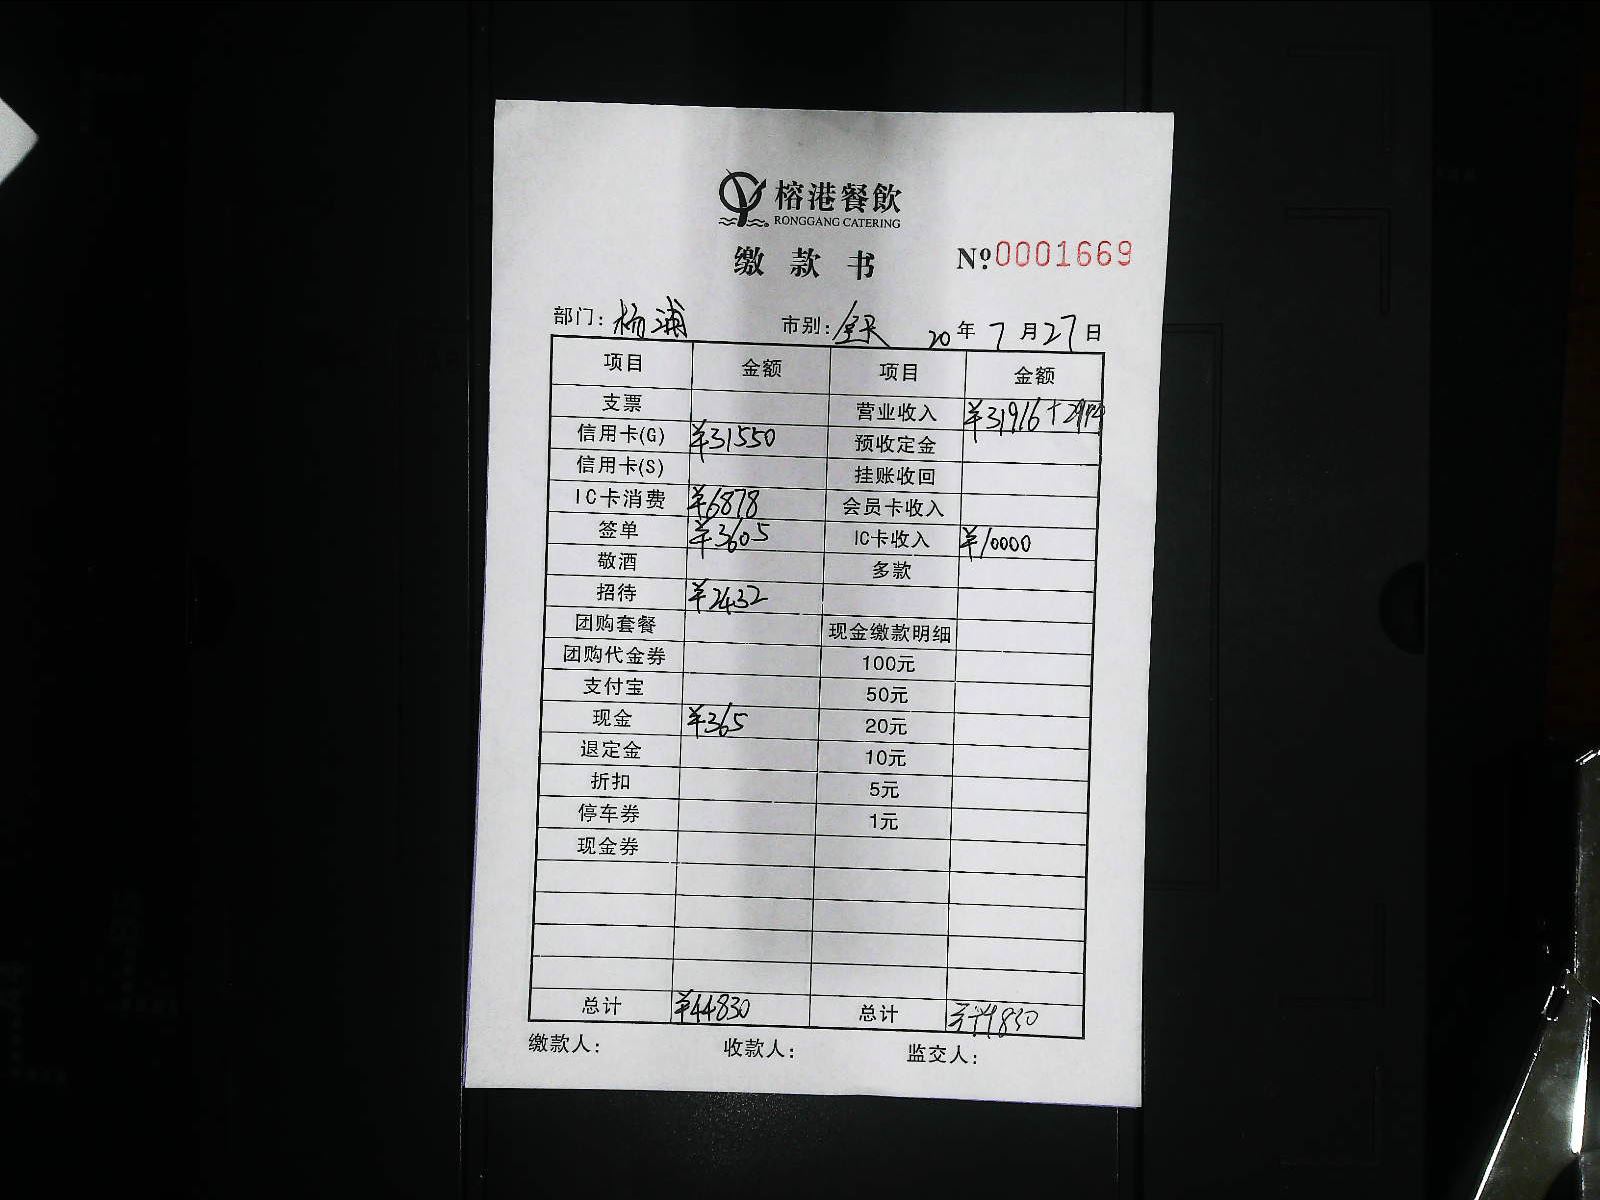 榕港餐飲
RONGGANG CATERING
缴款书 Nº0001669
部门: 杨浦 市别: 全天 20年7月27日
项目 金额 项目 金额
支票 营业收入 ¥31916+2914
信用卡(G) ¥31550 预收定金
信用卡(S) 挂账收回
IC卡消费 ¥6878 会员卡收入
签单 ¥3605 IC卡收入 ¥10000
敬酒 多款
招待 ¥2432
团购套餐 现金缴款明细
团购代金券 100元
支付宝 50元
现金 ¥365 20元
退定金 10元
折扣 5元
停车券 1元
现金券
总计 ¥44830 总计 ¥44830
缴款人: 收款人: 监交人: